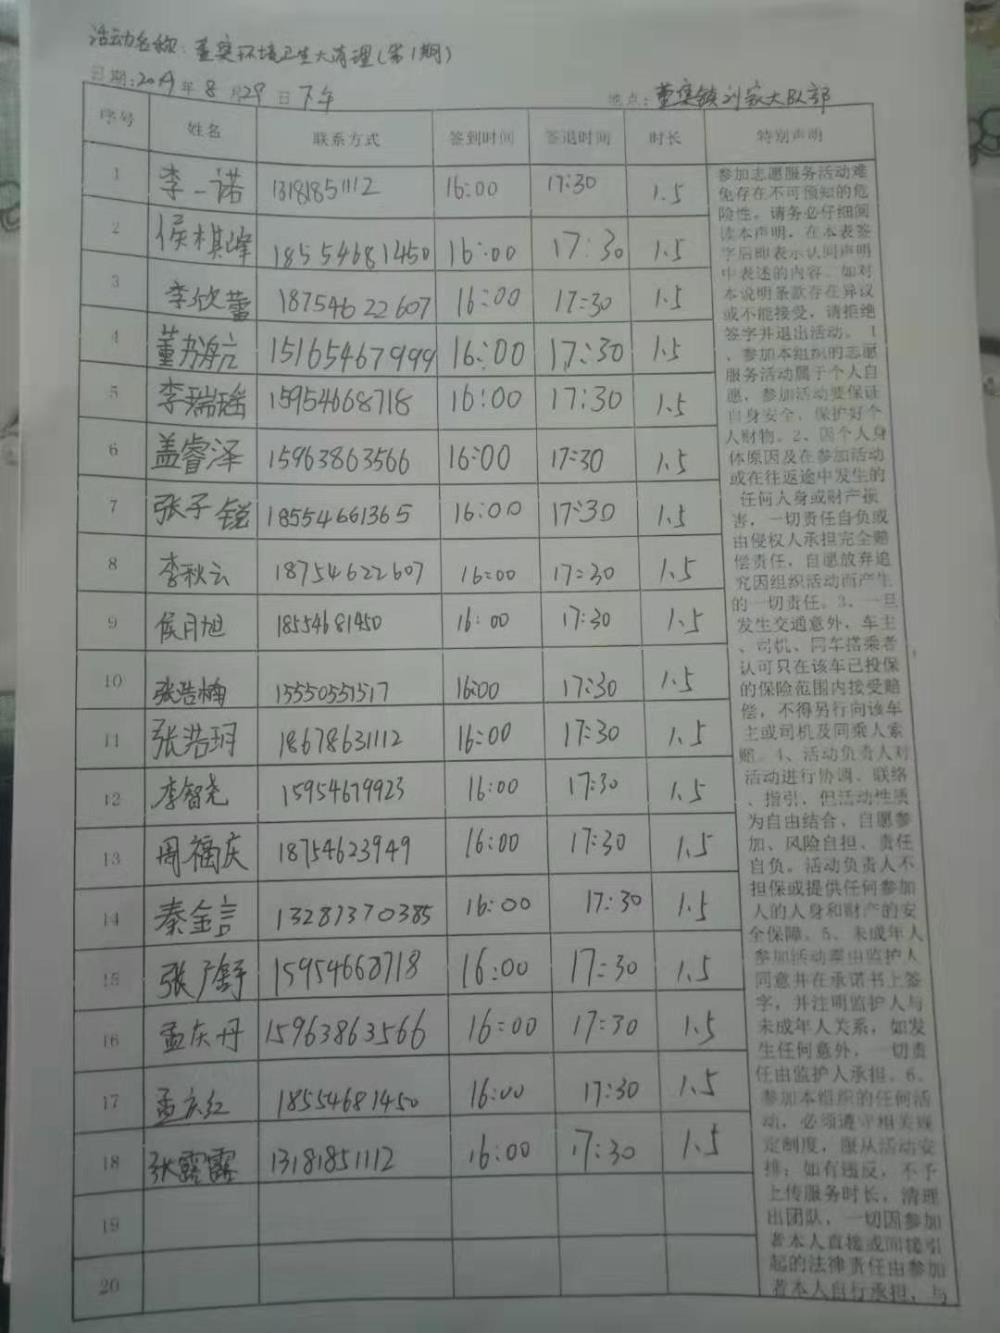 活动名称：董集环境卫生大清理(第1期)
日期:2019年8月29日下午 地点：董集镇刘家大队部
序号 姓名 联系方式 签到时间 签退时间 时长 特别声明
1 李一诺 13181851112 16:00 17:30 1.5
2 侯棋峰 18554681450 16:00 17:30 1.5
3 李欣蕾 18754622607 16:00 17:30 1.5
4 董 15165467999 16:00 17:30 1.5
5 李瑞瑶 15954668718 16:00 17:30 1.5
6 盖睿泽 15963863566 16:00 17:30 1.5
7 张子锐 18554661365 16:00 17:30 1.5
8 李秋云 18754622607 16:00 17:30 1.5
9 侯月旭 18554681450 16:00 17:30 1.5
10 张浩楠 15550551517 16:00 17:30 1.5
11 张浩玥 18678631112 16:00 17:30 1.5
12 李智尧 15954679923 16:00 17:30 1.5
13 周福庆 18754623949 16:00 17:30 1.5
14 秦金言 13287370385 16:00 17:30 1.5
15 张广舒 15954668718 16:00 17:30 1.5
16 孟庆丹 15963863566 16:00 17:30 1.5
17 孟庆红 18554681450 16:00 17:30 1.5
18 张露露 13181851112 16:00 17:30 1.5
19
20
参加志愿服务活动难
免存在不可预知的危
险性。请务必仔细阅
读本声明，在本表签
字后即表示认同声明
中表述的内容。如对
本说明条款存在异议
或不能接受，请拒绝
签字并退出活动。1
、参加本组织的志愿
服务活动属于个人自
愿，参加活动要保证
自身安全，保护好个
人财物。2、因个人身
体原因及在参加活动
或在往返途中发生的
任何人身或财产损
害，一切责任自负或
由侵权人承担完全赔
偿责任，自愿放弃追
究因组织活动而产生
的一切责任。3、一旦
发生交通意外，车主
、司机、同车搭乘者
认可只在该车已投保
的保险范围内接受赔
偿，不得另行向该车
主或司机及同乘人索
赔。4、活动负责人对
活动进行协调、联络
、指引，但活动性质
为自由结合，自愿参
加、风险自担、责任
自负。活动负责人不
担保或提供任何参加
人的人身和财产的安
全保障。5、未成年人
参加活动需由监护人
同意并在承诺书上签
字，并注明监护人与
未成年人关系，如发
生任何意外，一切责
任由监护人承担。6、
参加本组织的任何活
动，必须遵守相关规
定制度，服从活动安
排；如有违反，不予
上传服务时长，清理
出团队，一切因参加
者本人直接或间接引
起的法律责任由参加
者本人自行承担，与